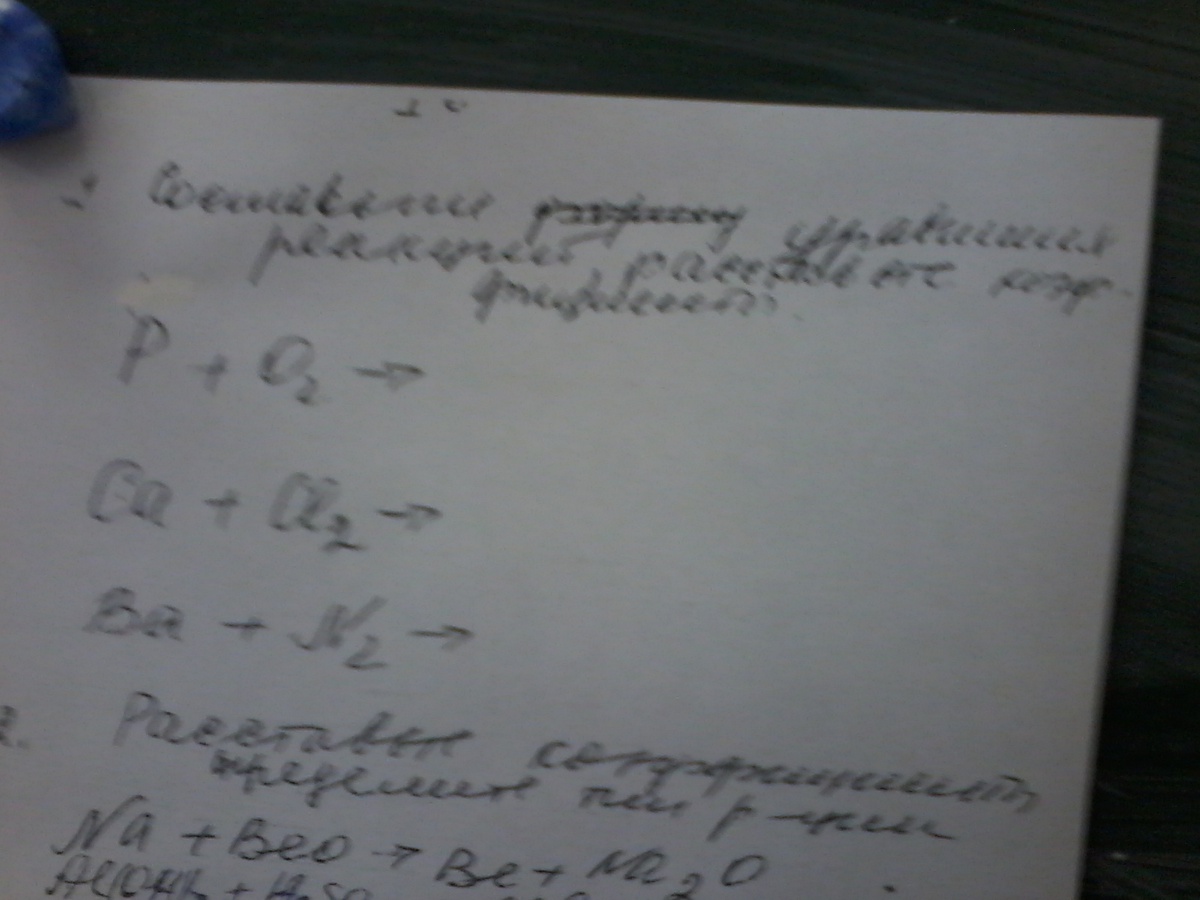 1 Составьте уравнения
реакций, расставьте коэф-
фициенты.
P + O₂ →
Ca + Cl₂ →
Ba + N₂ →
2. Расставьте коэффициенты,
определите тип р-ции
Na + BeO → Be + Na₂O
Al(OH)₃ +